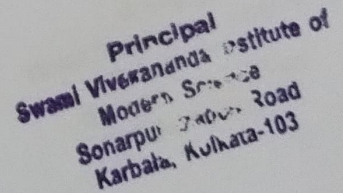 Principal
Swami Vivekananda Institute of
Modern Science
Sonarpur Road
Karbala, Kolkata-103